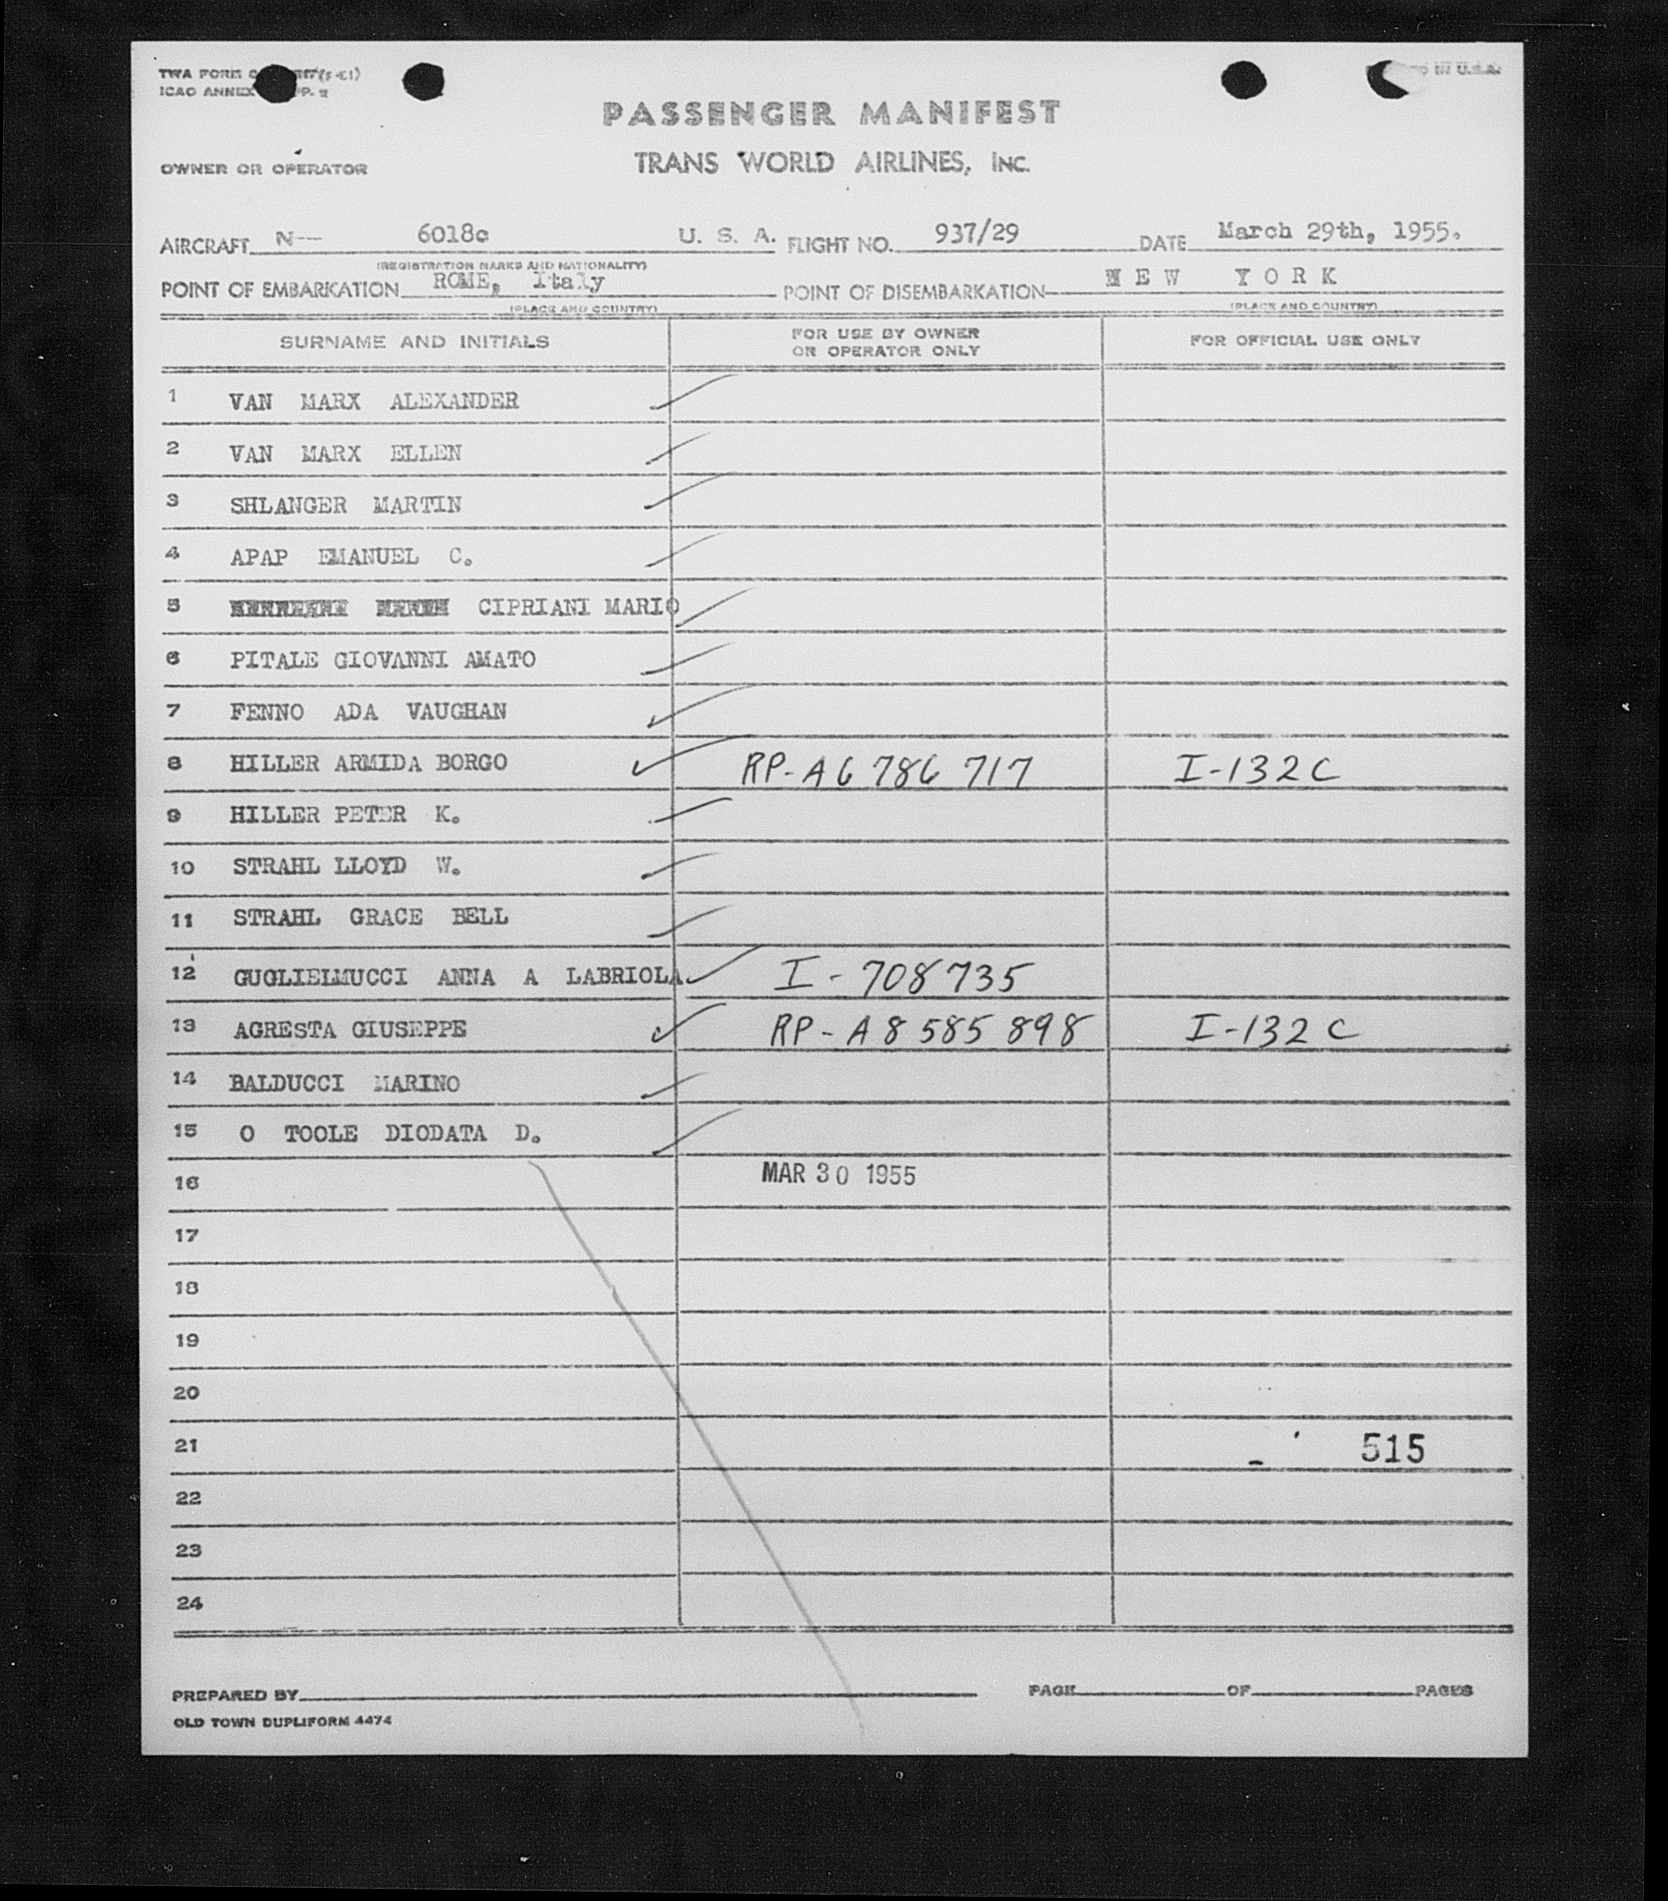 TWA FORM
ICAO ANNEX
IN U.S.A.
PASSENGER MANIFEST
OWNER OR OPERATOR
TRANS WORLD AIRLINES, INC.
AIRCRAFT N-- 6018c U. S. A. FLIGHT NO. 937/29 DATE March 29th, 1955.
(REGISTRATION MARKS AND NATIONALITY)
POINT OF EMBARKATION ROME, Italy POINT OF DISEMBARKATION NEW YORK
(PLACE AND COUNTRY) (PLACE AND COUNTRY)
SURNAME AND INITIALS FOR USE BY OWNER OR OPERATOR ONLY FOR OFFICIAL USE ONLY
1 VAN MARX ALEXANDER
2 VAN MARX ELLEN
3 SHLANGER MARTIN
4 APAP EMANUEL C.
5 CIPRIANI MARIO
6 PITALE GIOVANNI AMATO
7 FENNO ADA VAUGHAN
8 HILLER ARMIDA BORGO RP-A6 786 717 I-132C
9 HILLER PETER K.
10 STRAHL LLOYD W.
11 STRAHL GRACE BELL
12 GUGLIELMUCCI ANNA A LABRIOLA I-708735
13 AGRESTA GIUSEPPE RP-A8 585 898 I-132C
14 BALDUCCI MARINO
15 O TOOLE DIODATA D.
16 MAR 30 1955
17
18
19
20
21 515
22
23
24
PREPARED BY PAGE OF PAGES
OLD TOWN DUPLIFORM 4474